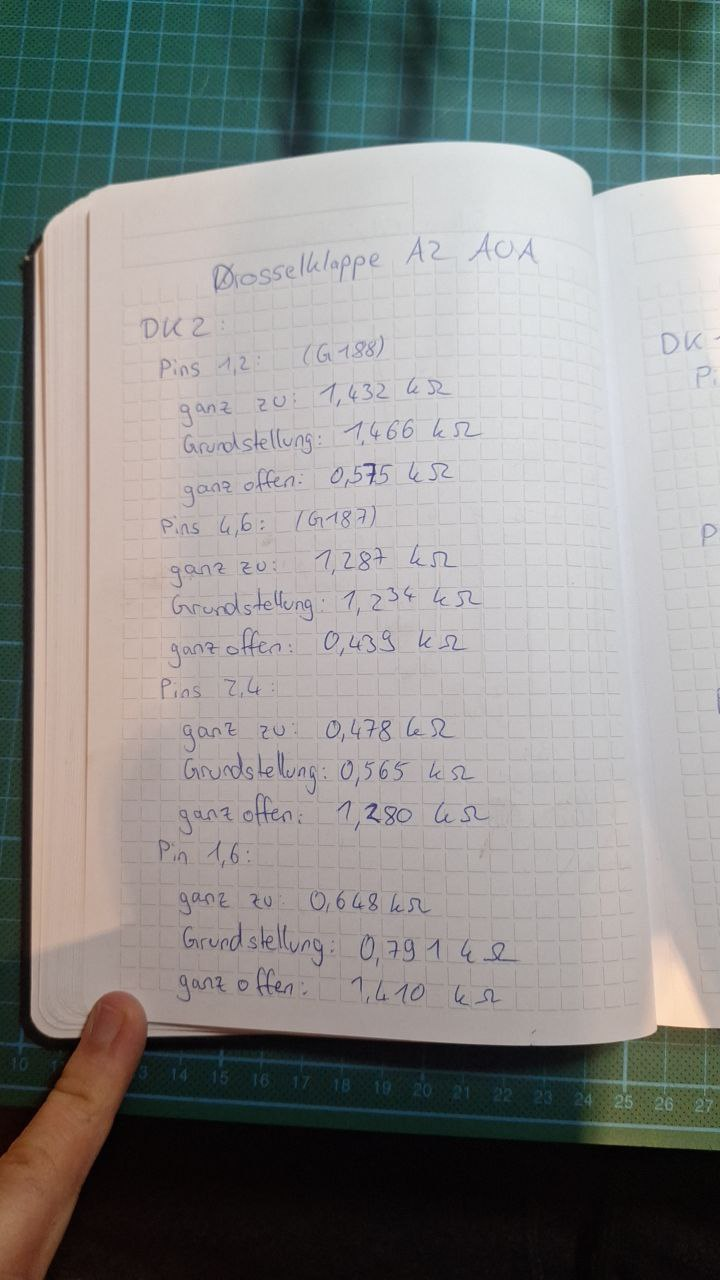 Drosselklappe A2 AUA
DK 2:
Pins 1,2: (G188)
ganz zu: 1,432 kΩ
Grundstellung: 1,466 kΩ
ganz offen: 0,575 kΩ
Pins 4,6: (G187)
ganz zu: 1,287 kΩ
Grundstellung: 1,234 kΩ
ganz offen: 0,439 kΩ
Pins 2,4:
ganz zu: 0,478 kΩ
Grundstellung: 0,565 kΩ
ganz offen: 1,280 kΩ
Pin 1,6:
ganz zu: 0,648 kΩ
Grundstellung: 0,791 kΩ
ganz offen: 1,410 kΩ
DK
Pi
P
10 13 14 15 16 17 18 19 20 21 22 23 24 25 26 27